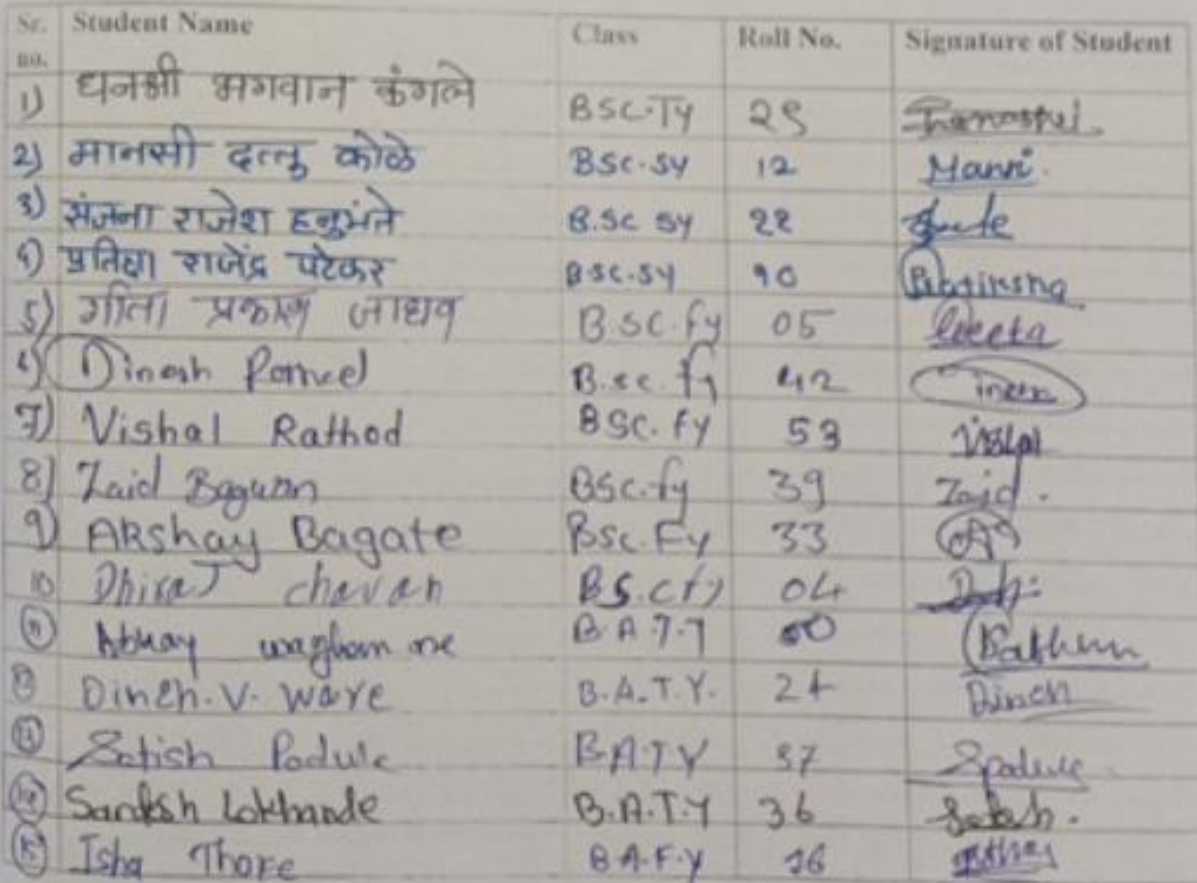 Sr. no. Student Name Class Roll No. Signature of Student
1) धनश्री भगवान कंगले BSC.TY 29
2) मानसी दत्तु कोळे BSC.SY 12 Mansi.
3) संजना राजेश हनुमंते B.SC SY 22
प्रतिक्षा राजेंद्र पटेकर BSC.SY 10
5) गीता प्रकाश जाधव B.SC.fy 05 Geeta
Dinesh B.sc. fy 42
7) Vishal Rathod BSC.fy 53 Vishal
8) Zaid Bagwan BSC.fy 39 Zaid.
9) Akshay Bagate BSC.Fy 33
10 Dhiraj chavan B.S.c fy 04
Abhay waghamare B.A.T.Y
Dinesh.V. Ware B.A.T.Y. 24 Dinesh
Satish Padule B.A.T.Y 37 Spadule
Lokhande B.A.T.Y 36
15 Isha Thore B.A.F.Y 16